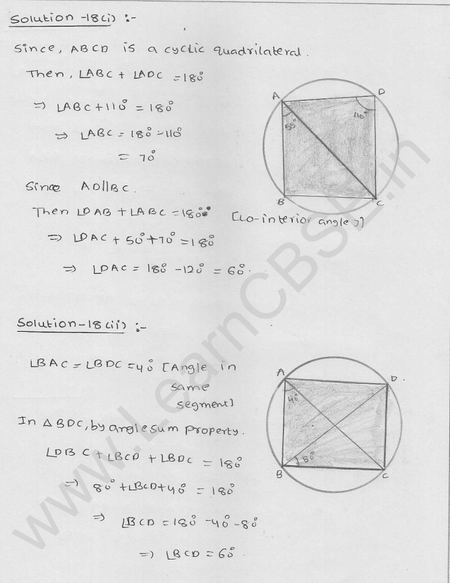 Solution-18(i) :-
Since, ABCD is a cyclic quadrilateral.
Then, ∠ABC + ∠ADC = 180°
⇒ ∠ABC + 110° = 180°
⇒ ∠ABC = 180° - 110°
= 70°
A
D
50°
110°
B
C
Since AD||BC.
Then ∠DAB + ∠ABC = 180°
[co-interior angles]
⇒ ∠DAC + 50° + 70° = 180°
⇒ ∠DAC = 180° - 120° = 60°.
Solution-18(ii) :-
∠BAC = ∠BDC = 40° [Angle in
same
segment]
In △BDC, by angle sum property.
∠DBC + ∠BCD + ∠BDC = 180°
⇒ 80° + ∠BCD + 40° = 180°
⇒ ∠BCD = 180° - 40° - 80°
⇒ ∠BCD = 60°.
A
D
40°
80°
B
C
www.LearnCBSE.in